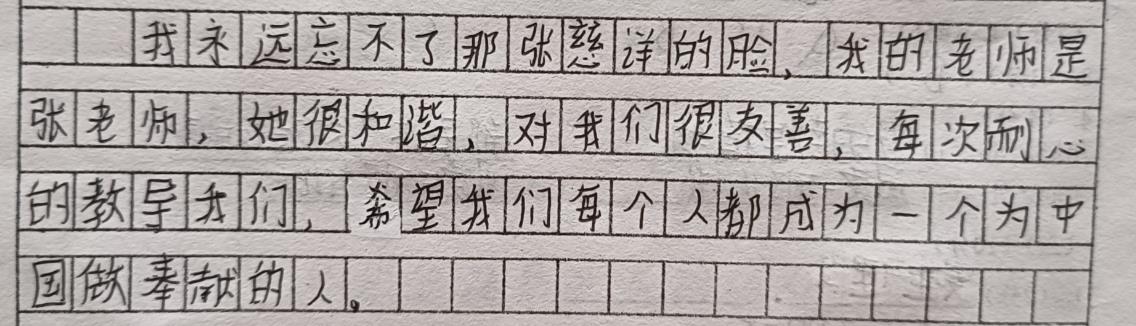 我永远忘不了那张慈洋的脸，我的老师是
张老师，她很和谐，对我们很友善，每次耐心
的教导我们，希望我们每个人都成为一个为中
国做奉献的人。